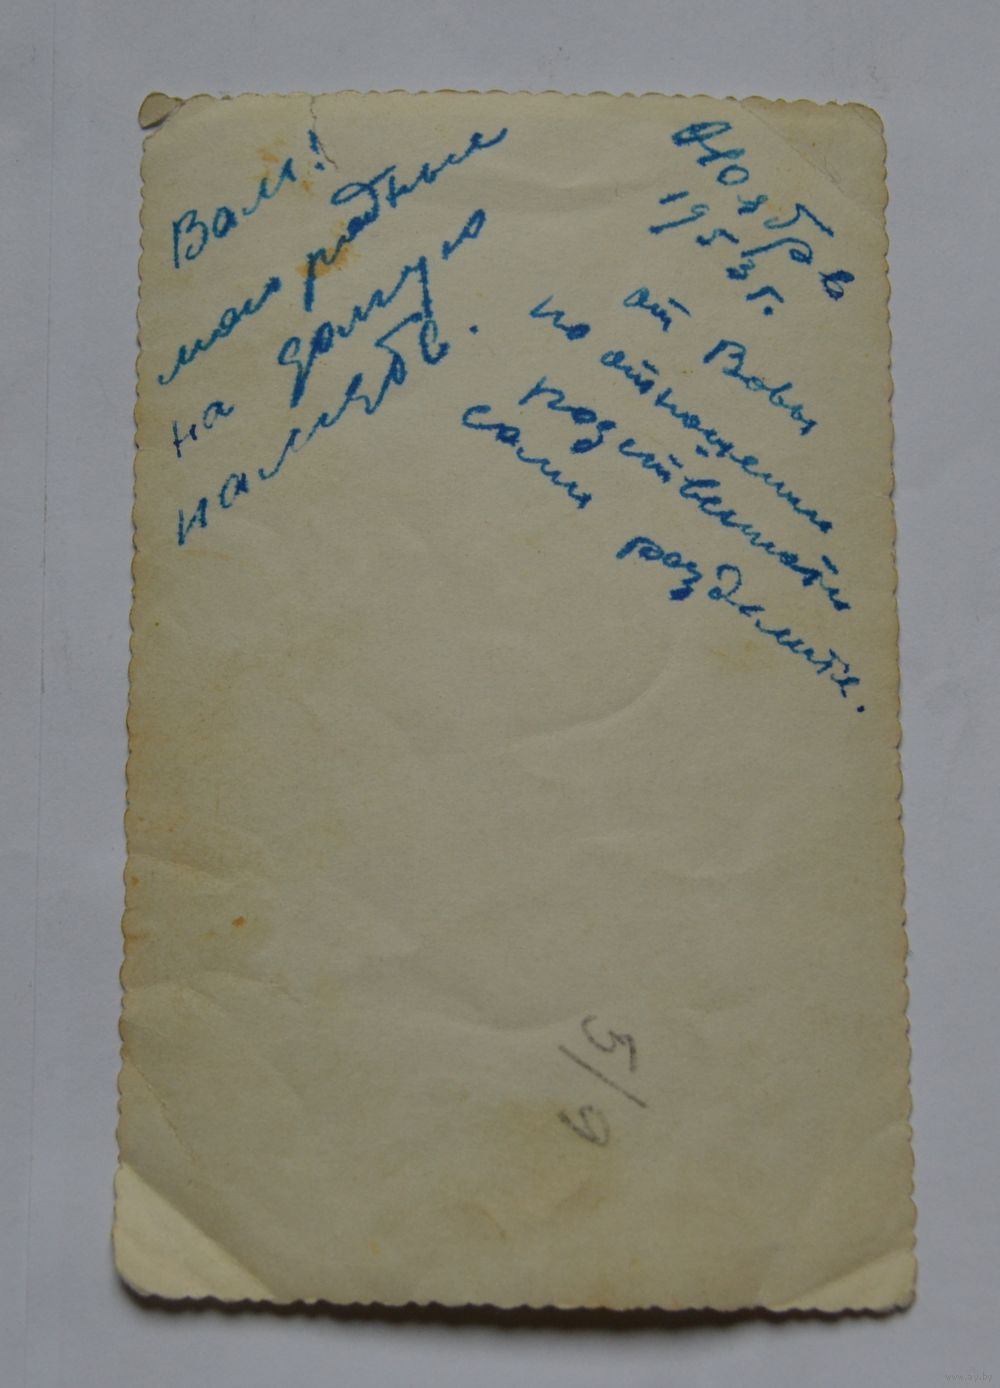 Вам!
мои родные
на долгую
память.
Ноябрь
1953г.
от Вовы
по отношению
родственности
сами разделите.
5/9
www.ay.by